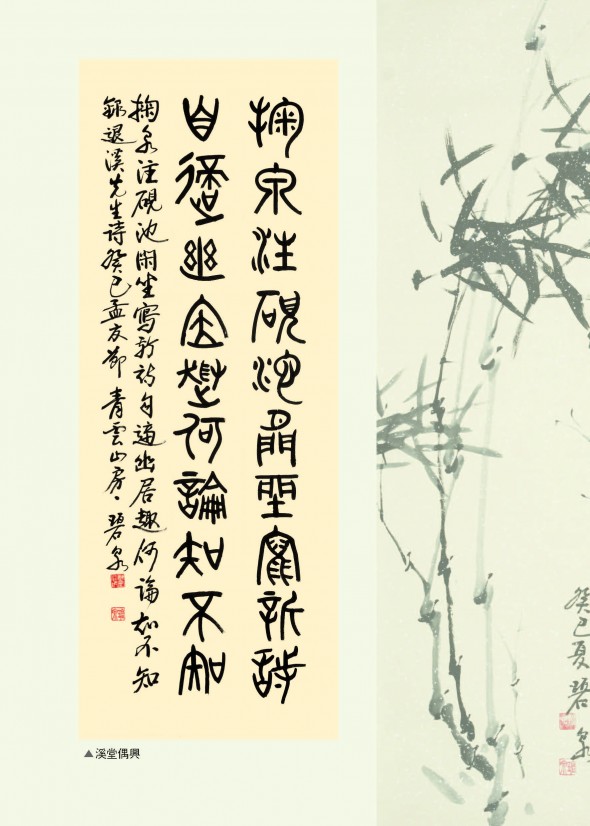 掬泉注硯池閒坐寫新詩
自適幽居趣何論知不知
掬泉注硯池閒坐寫新詩自適幽居趣何論知不知
錄退溪先生詩癸巳孟夏節 青雲山房 碧泉
▲溪堂偶興
癸巳夏碧泉